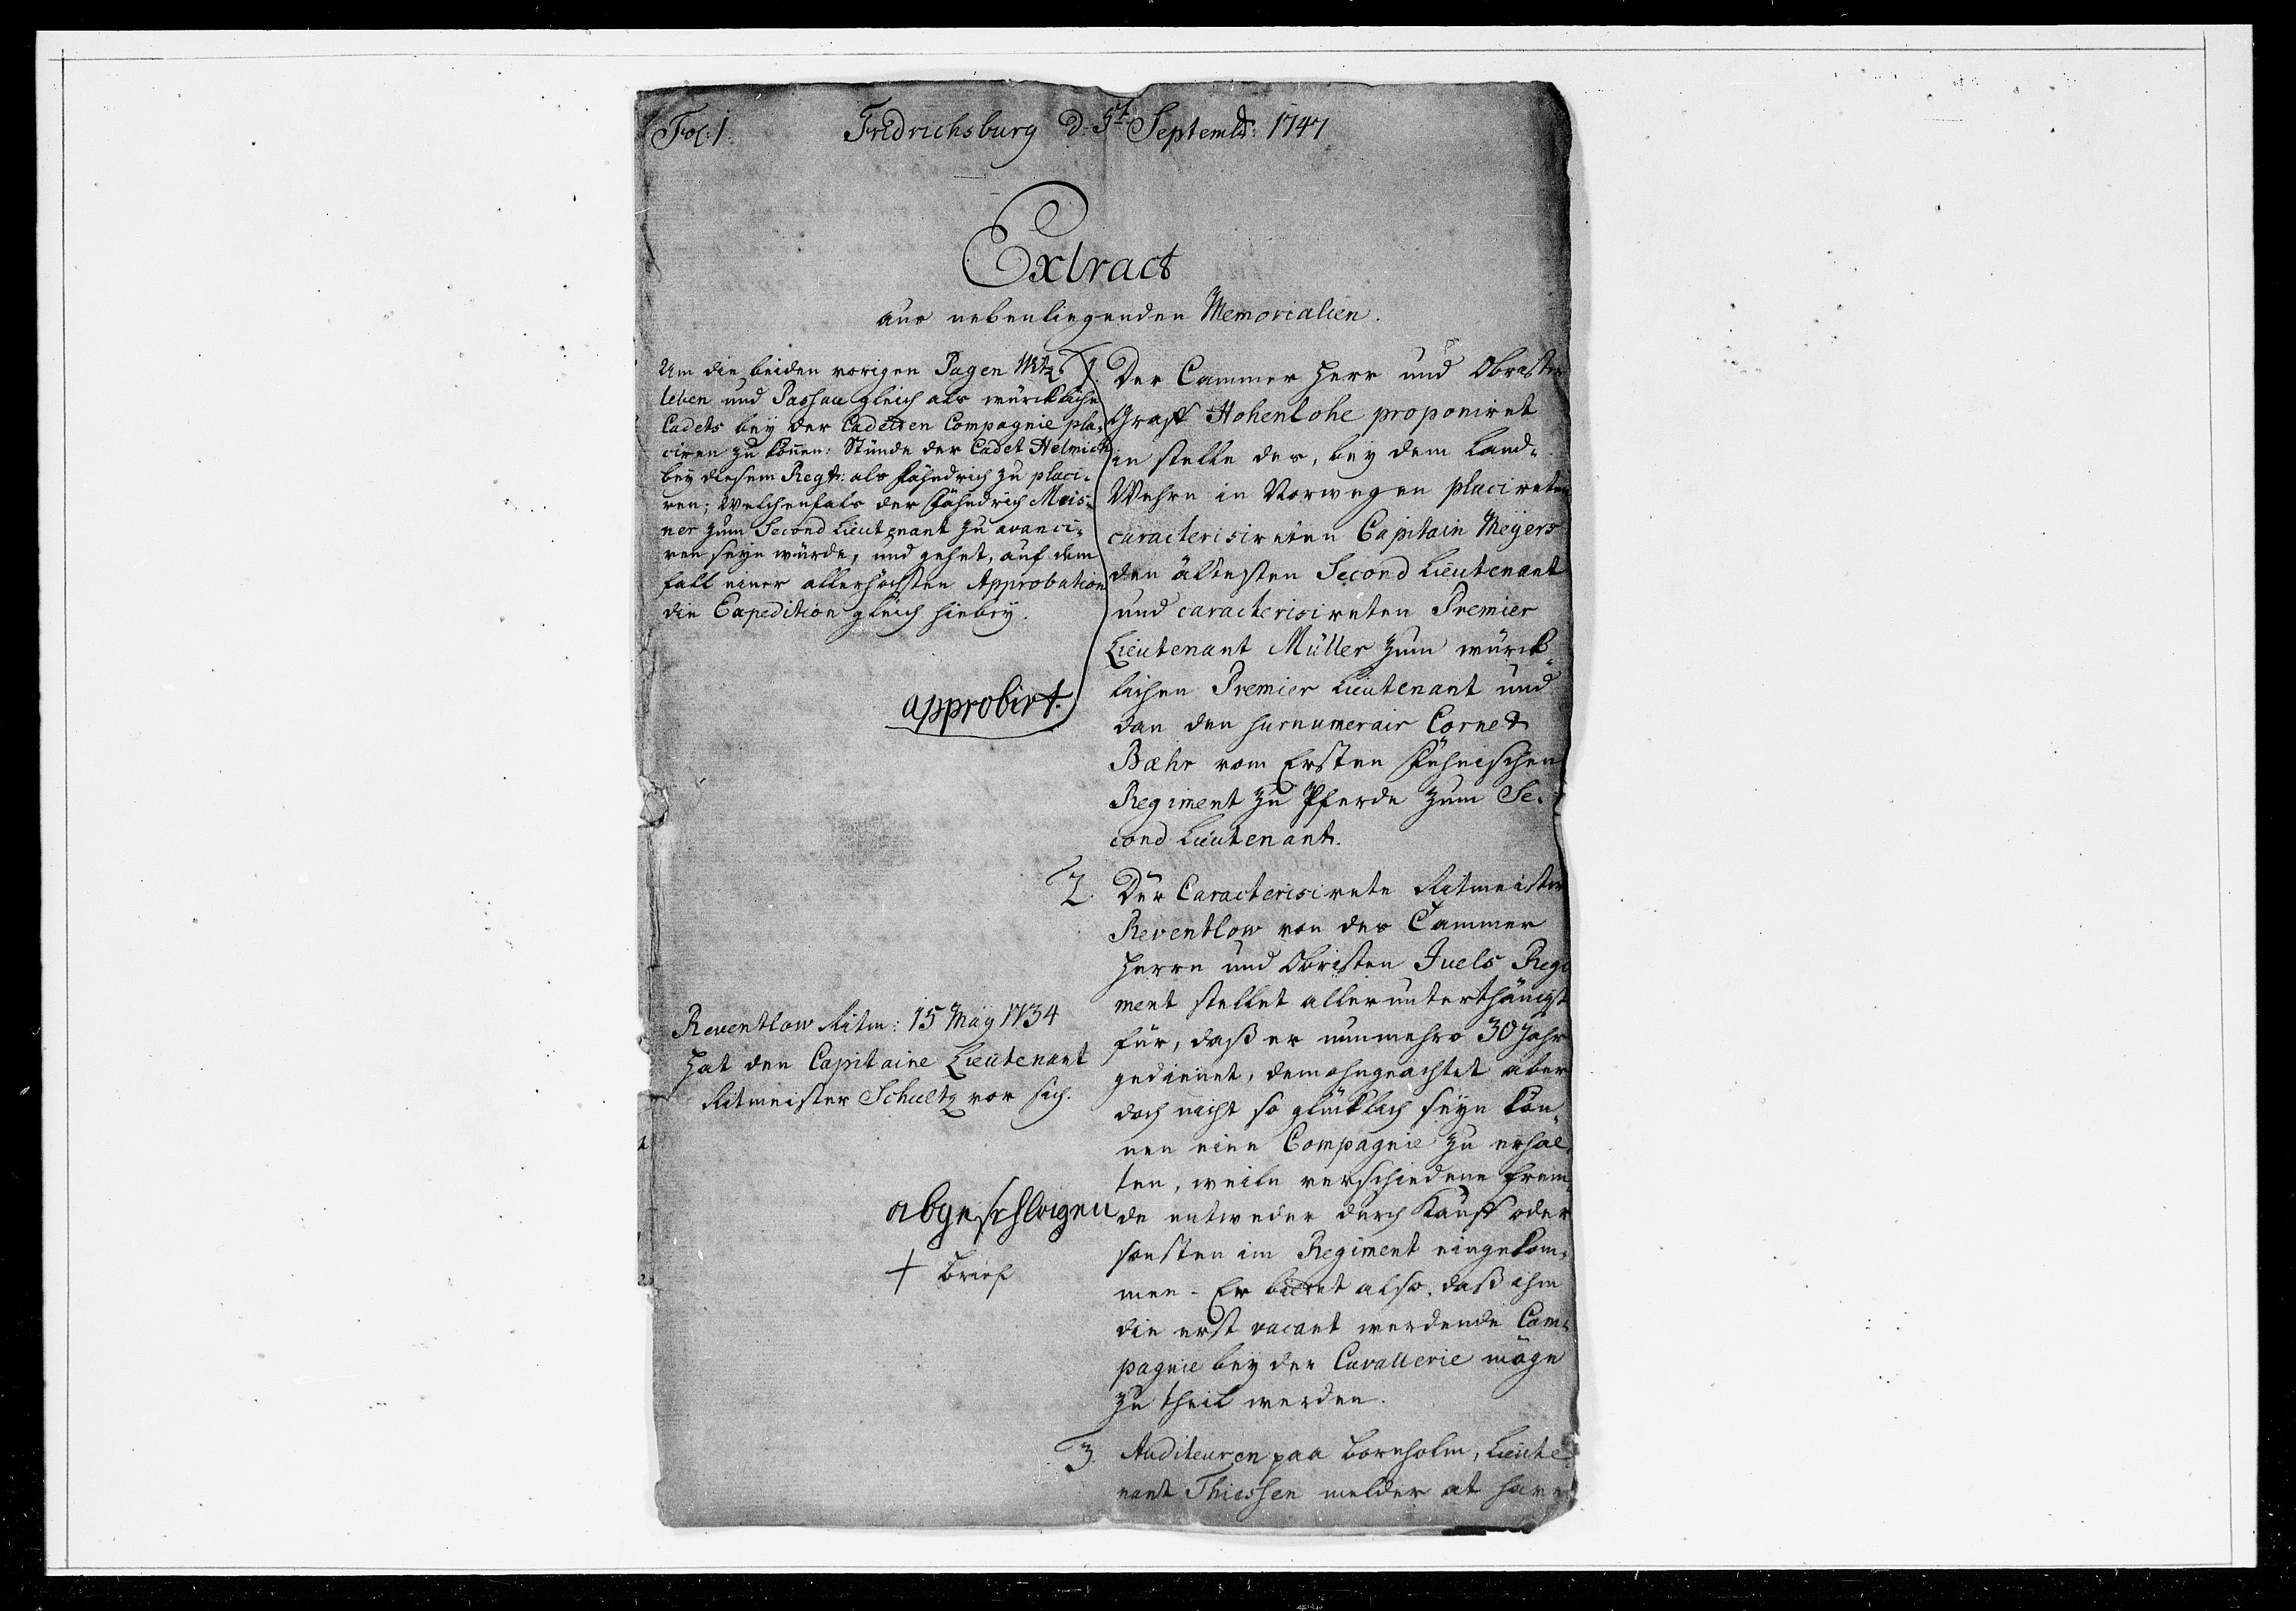 Fol: 1.
Fridrichsburg d: 5t Septembr: 1747
Extract
aus nebenliegenden Memorialien.
Um die beiden vorigen Pagen Witz
leben und Passau gleich als würckliche
Cadets beÿ der Cadetten Compagnie pla-
ciren zu können: Stünde der Cadet Helmich
beÿ diesem Regt: als Fähndrich zu placi-
ren; Welchenfals der Fähndrich Meis-
ner zum Second Lieutenant zu avanci-
ren seyn würde, und gehet, auf dem
fall einer allerhöchsten Approbation
die Expedition gleich hiebeÿ.
approbirt.
1. Der Cammer Herr und Obrister
Graff Hohenlohe proponiret
in stelle des, beÿ dem Land-
Wehre in Norwegen placireten
caracterisireten Capitain Meÿers
den ältesten Second Lieutenant
und caracterisireten Premier
Lieutenant Müller zum würck-
lichen Premier Lieutenant und
dan den surnumerair Cornet
Bæhr vom Ersten Fühnischen
Regiment zu Pferde zum Se-
cond Lieutenant.
2. Der Caracterisirete Ritmeister
Reventlow von des Cammer
Herrn und Obristen Juels Regi
ment stellet allerunterthänigst
für, daß er nunmehro 30 Jahr
gedienet, demohngeachtet aber
doch nicht so glücklich seyn kön-
nen eine Compagnie zu erhal-
ten, weiln verschiedene frem-
de entweder durch Kauff oder
sonsten im Regiment eingekom-
men - Er bittet also, daß ihm
die erst vacant werdende Com-
pagnie beÿ der Cavallerie möge
zu theil werden.
Reventlow Ritm: 15 Maÿ 1734
hat den Capitaine Lieutenant
Ritmeister Schultz vor sich.
abgeschlagen
+ Brief
3. Auditeuren paa Bornholm, Lieute-
nant Thiessen melder at have